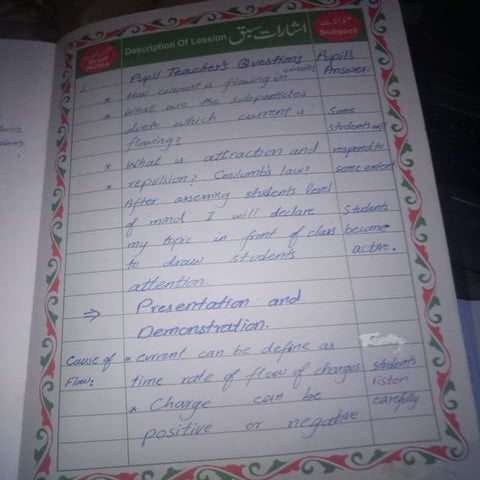 Brief Notes
Description Of Lession اشارات سبق
عنوانات Subject
Pupil Teacher's Questions Pupil's
* How current is flowing in circuit Answer.
* What are the subparticles
dueto which current is Some
flowing? students will
* What is attraction and respond to
* repulsion? Coulumb's law? some extent
After assessing students level
of mind I will declare Students
my topic in front of class become
to draw students active.
attention.
⇒ Presentation and
Demonstration.
Cause of * current can be define as
Flow: time rate of flow of charges students
* Charge can be listen
positive or negative carefully